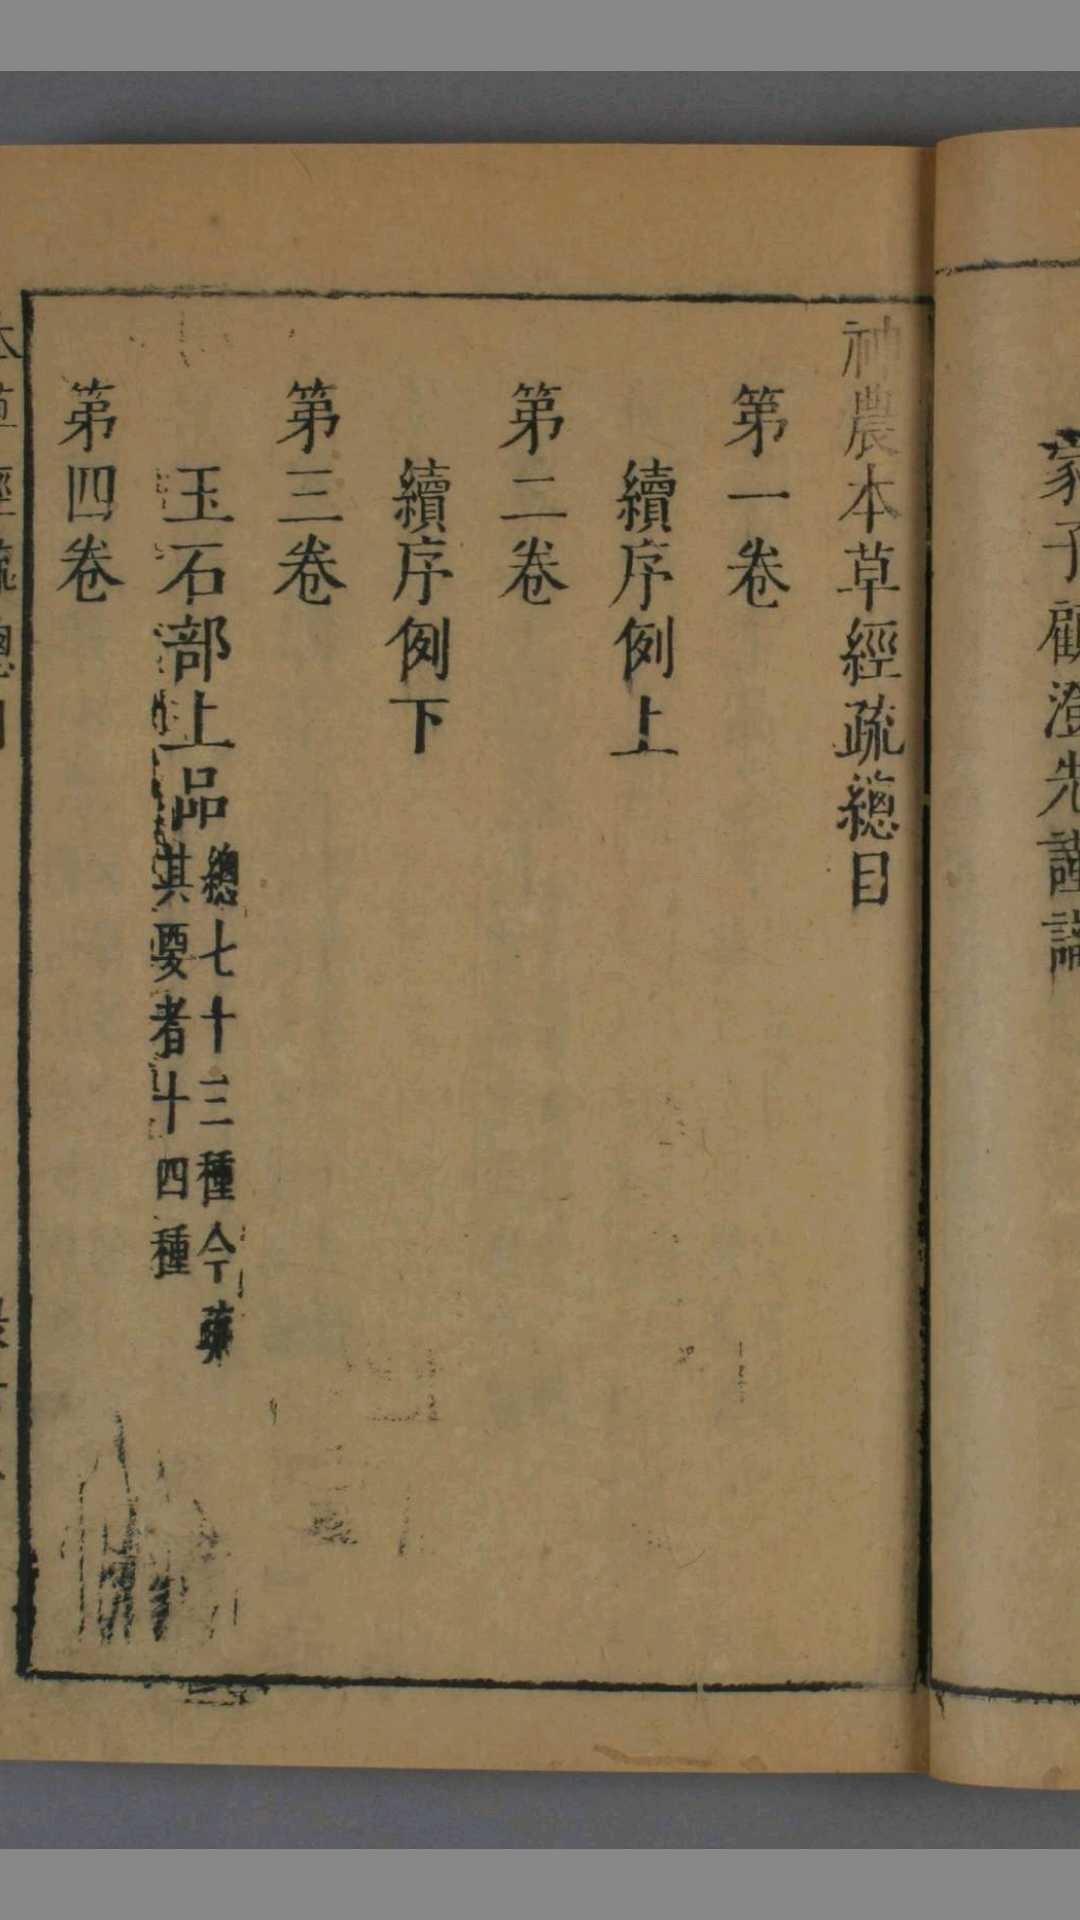 家子顧澄先謹識
神農本草經疏總目
第一卷
續序例上
第二卷
續序例下
第三卷
玉石部上品
總七十三種今疏
其要者十四種
第四卷
本草經疏總目